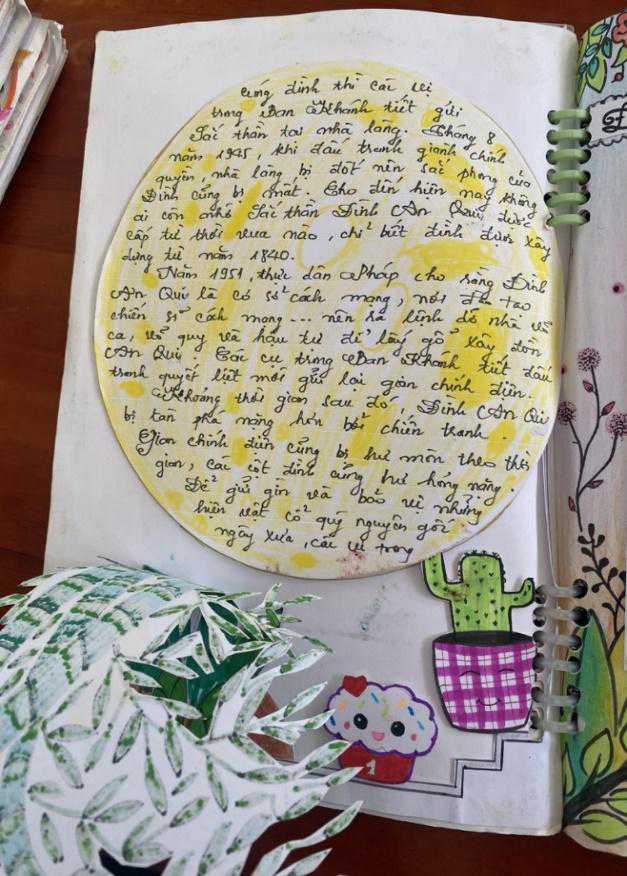 cúng đình thì các vị
trong Ban Khánh tiết gửi
Sắc thần tại nhà làng. Tháng 8
năm 1945, khi đấu tranh giành chính
quyền, nhà làng bị đốt nên sắc phong của
Đình cũng bị mất. Cho đến hiện nay không
ai còn nhớ Sắc thần Đình An Quí được
cấp từ thời vua nào, chỉ biết đình được xây
dựng từ năm 1840.
Năm 1951, thực dân Pháp cho rằng Đình
An Quí là cơ sở cách mạng, nơi đào tạo
chiến sĩ cách mạng... nên ra lệnh dỡ nhà võ
ca, võ quy và hậu tự để lấy gỗ xây đồn
An Quí. Các cụ trong Ban Khánh tiết đấu
tranh quyết liệt mới giữ lại gian chính điện.
Khoảng thời gian sau đó, Đình An Quí
bị tàn phá nặng hơn bởi chiến tranh.
Gian chính điện cũng bị hư mòn theo thời
gian, các cột đình cũng hư hỏng nặng.
Để giữ gìn và bảo vệ những
hiện vật cổ quý nguyên gốc
ngày xưa, các vị trong
1